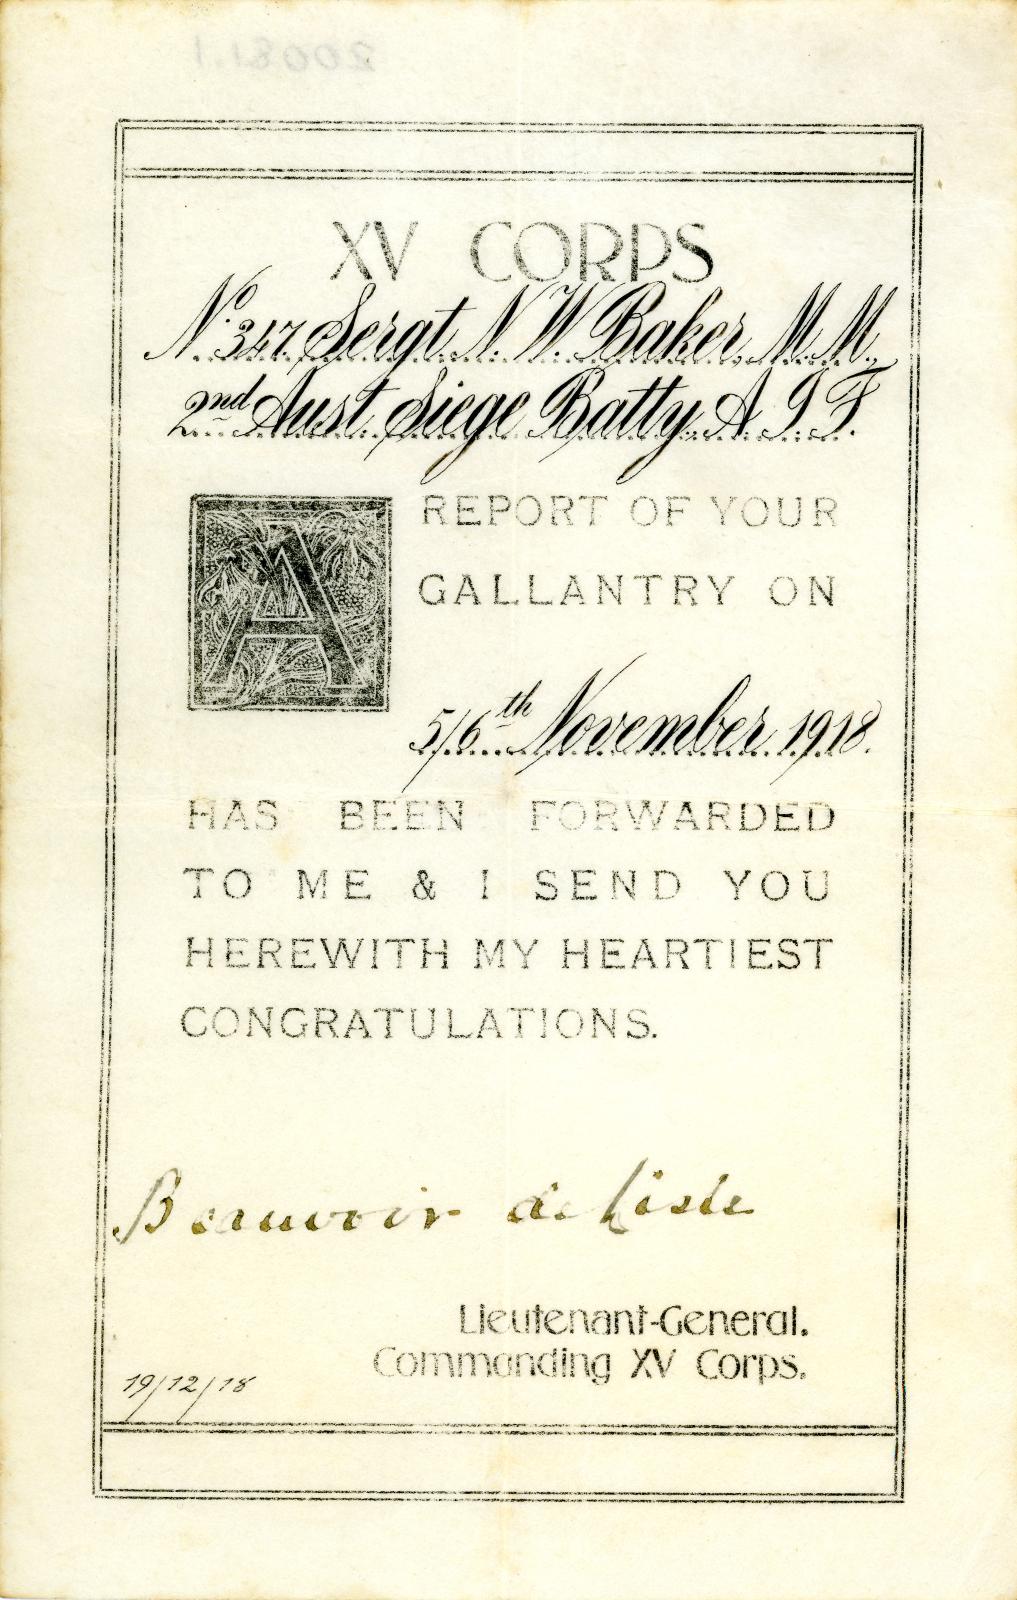 XV CORPS
No. 347 Sergt N. W. Baker, M M.,
2nd Aust Siege Batty, A. I. F.
A REPORT OF YOUR
GALLANTRY ON
5/6th November 1918.
HAS BEEN FORWARDED
TO ME & I SEND YOU
HEREWITH MY HEARTIEST
CONGRATULATIONS.
Beauvoir de Lisle
Lieutenant-General.
Commanding XV Corps.
19/12/18